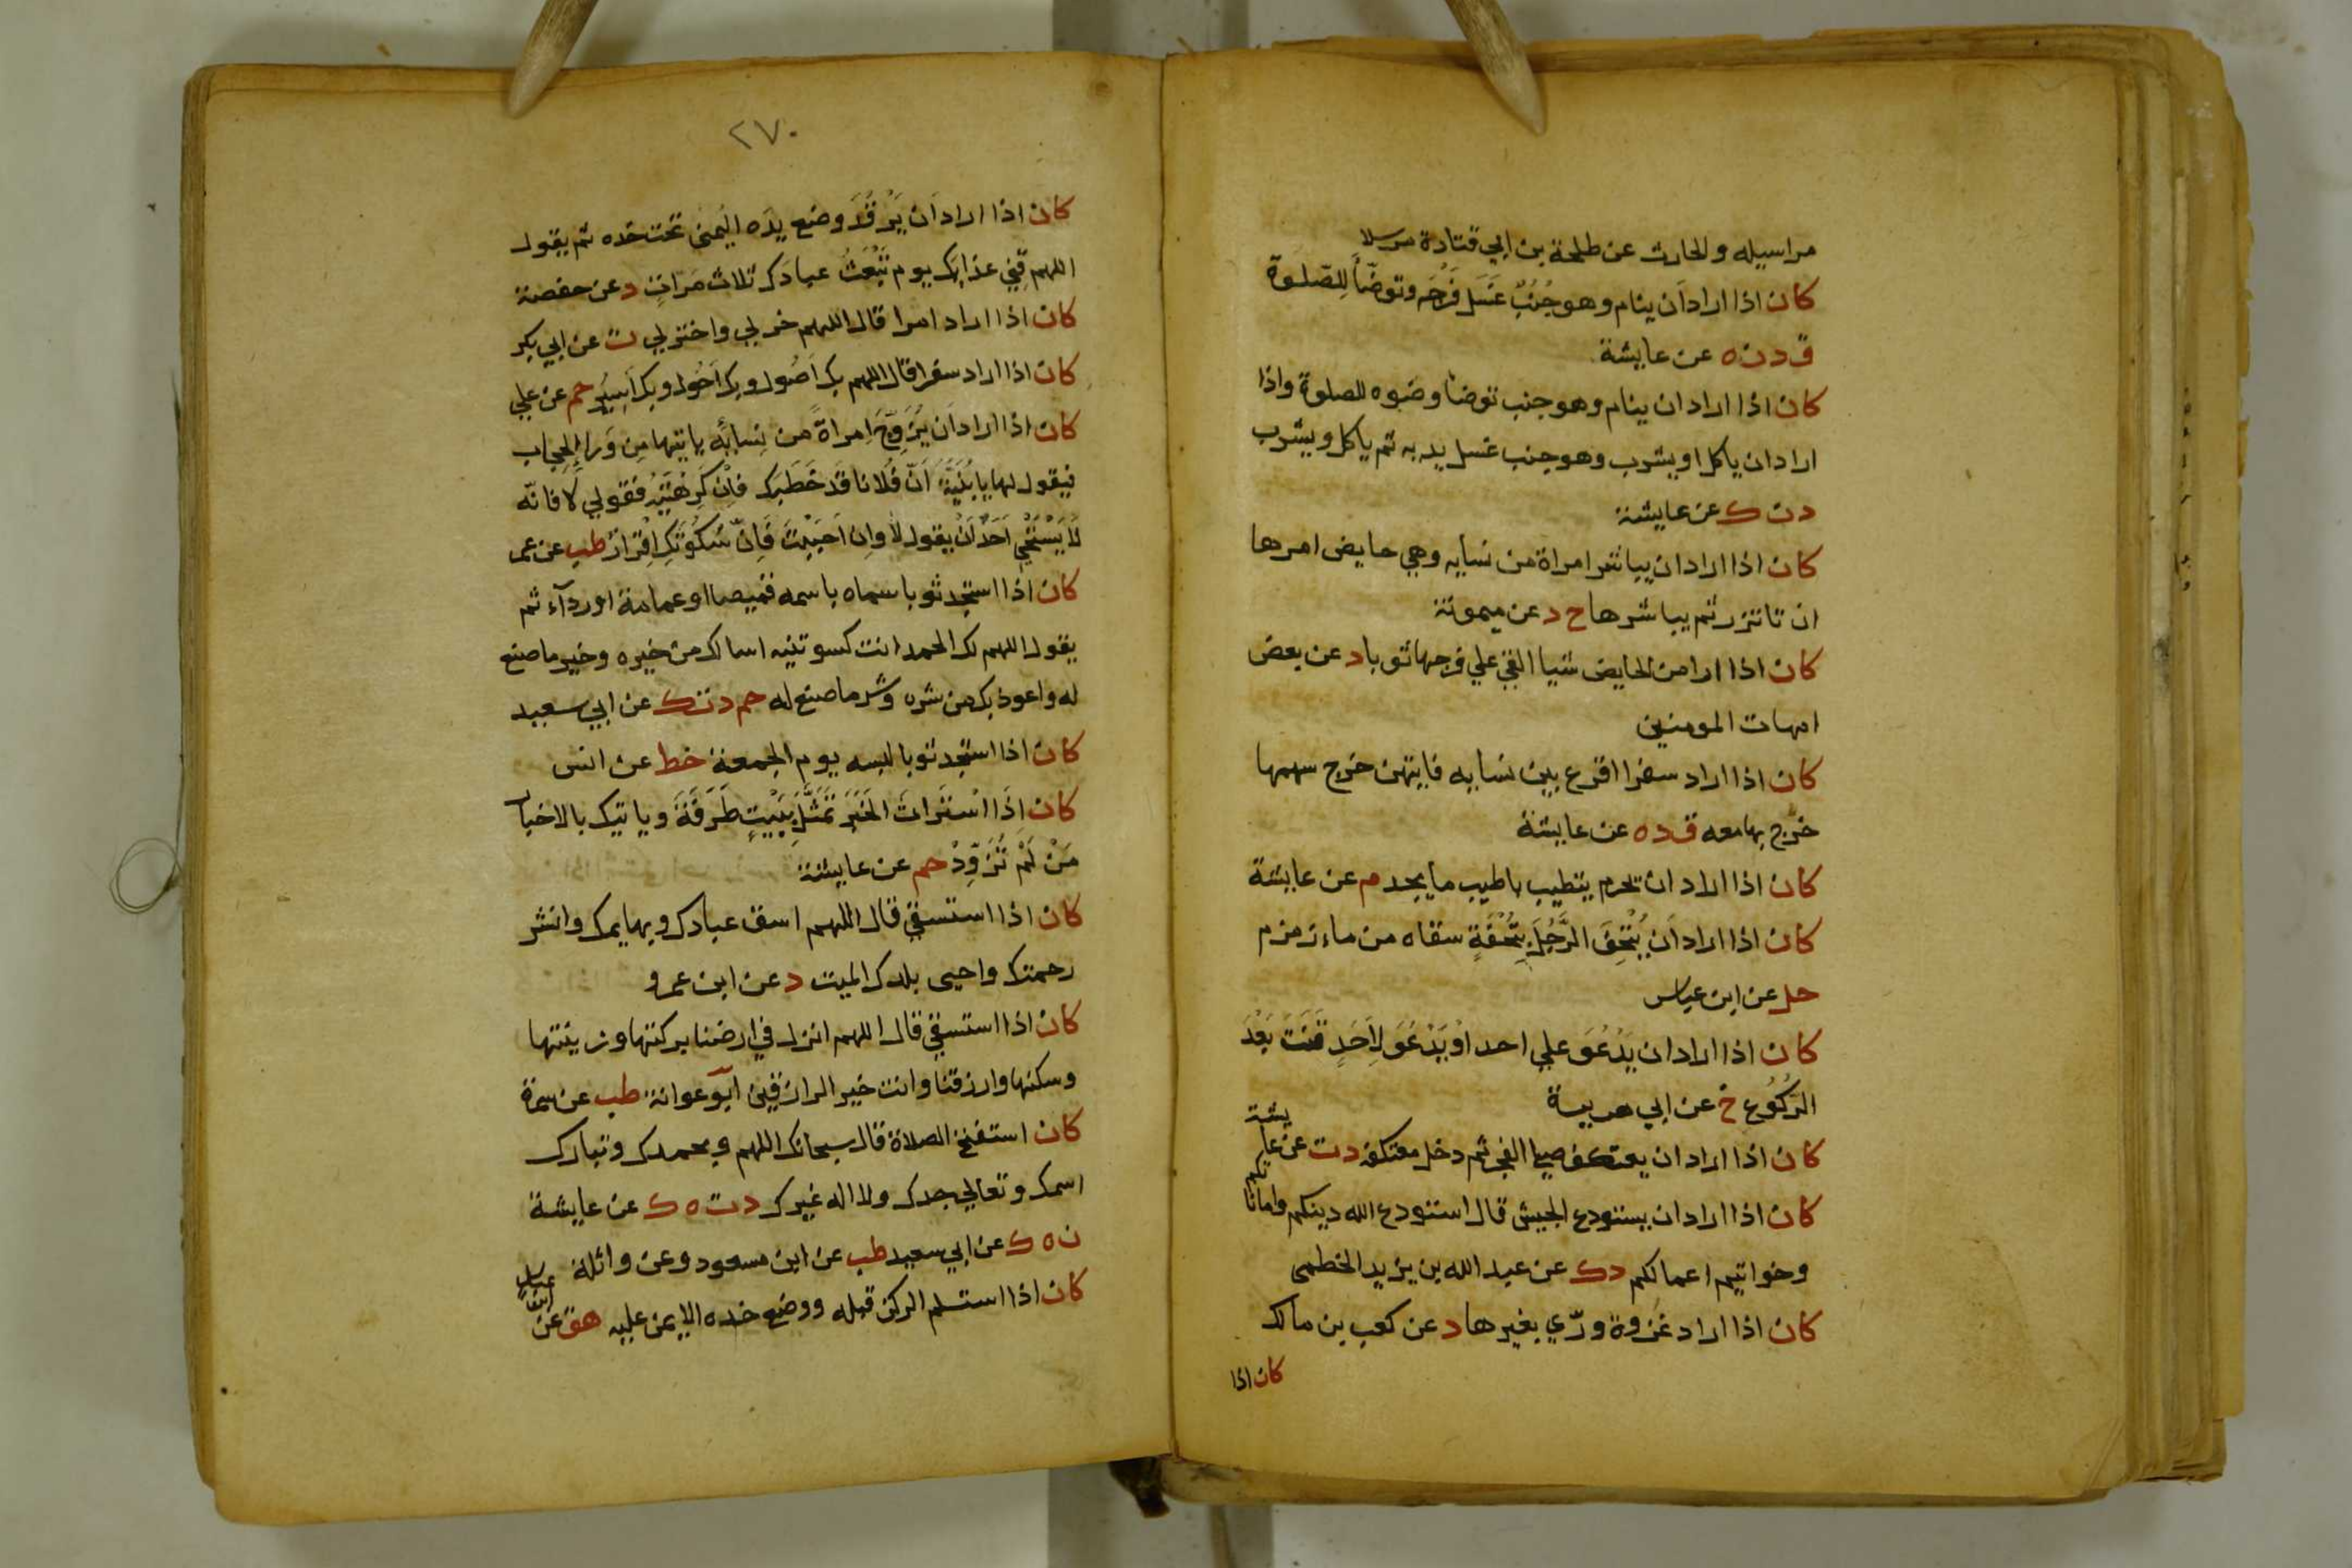 مراسيله والحارث عن طلحة بن ابي قتادة مرسلا
كان اذا اراد اَن ينام وهو جُنُبٌ غَسَل فَرْجَه وتوضّأ لِلصّلوة
ق د ن ه عن عايشة
كان اذا اراد ان ينام وهو جنب توضأ وضوه للصلوة واذا
اراد ان ياكل او يشرب وهو جنب غسل يديه ثم ياكل ويشرب
د ن ك عن عايشة
كان اذا اراد ان يباشر امراة من نسايه وهي حايض امرها
ان تاتزر ثم يباشرها خ د عن ميمونة
كان اذا اراد من الحايض شيا القي علي فرجها ثوبا د عن بعض
امهات المومنين
كان اذا اراد سفرا اقرع بين نسايه فايتهن خرج سهمها
خرج بها معه ق د ه عن عايشة
كان اذا اراد ان يحرم يتطيب باطيب ما يجد م عن عايشة
كان اذا اراد اَن يُتْحِفَ الرَّجُلَ بِتُحْفَةٍ سقاه من ماء زمزم
حل عن ابن عباس
كان اذا اراد ان يَدْعُوَ علي احد اوْ يَدْعُوَ لِاَحَدٍ قَنَتَ بَعْدَ
الرّكُوُع خ عن ابي هريرة
كان اذا اراد ان يعتكف صلي الفجر ثم دخل معتكفه د ت عن عايشة
كان اذا اراد ان يستودع الجيش قال استودع الله دينكم واماناتكم
وخواتيم اعمالكم د ك عن عبد الله بن يزيد الخطمي
كان اذا اراد غزوة ورّي بغيرها د عن كعب بن مالك
كان اذا
٢٧٠
كان اذا اراد اَن يَرْقُدَ وضع يدَه اليُمنى تحت خده ثم يقول
اللهم قِنِي عذابَك يوم تَبْعَثُ عبادَك ثلاث مَرّاتٍ د عن حفصة
كان اذا اراد امرا قال اللهم خر لي واختر لي ت عن ابي بكر
كان اذا اراد سفرا قال اللهم بك اَصُول وبك اَحُول وبك اَسِيُر حم عن علي
كان اذا اراد اَن يُزَوِّجَ اِمراةً من نِسايِه ياتيها مِن وَراء الحِجاب
فيقول لها يا بُنَيَّةُ اَنّ فُلَانا قَد خَطَبَك فاِنْ كَرِهْتِيْهِ فقولي لا فانّه
لَا يَسْتَحْيِ اَحَدٌ اَنْ يقول لا وان احْبَبْتِ فَاِنّ سُكُوُتَكِ اِقْرَارٌ طب عن عمر
كان اذا استجد ثوبا سماه باسمه قميصا او عمامة او رداء ثم
يقول اللهم لك الحمد انت كسوتنيه اسالك من خيره وخير ما صنع
له واعوذ بك من شره وشر ما صنع له حم د ت ك عن ابي سعيد
كان اذا استجد ثوبا لبسه يوم الجمعة خط عن انس
كان اذَا اسْتَرَاثَ الخَبَرَ تَمَثَّلَ بِبَيْتٍ طَرَفَةَ وياتيك بالاخبار
مَنْ لَمْ تُزَوِّدْ حم عن عايشة
كان اذا استسقي قال اللهم اسق عبادك وبهايمك وانشر
رحمتك واحيى بلدك الميت د عن ابن عمرو
كان اذا استسقي قال اللهم انزل في ارضنا بركتها وزينتها
وسكنها وارزقنا وانت خير الرازقين ابو عوانة طب عن سمرة
كان استفتح الصلاة قال سبحانك اللهم وبحمدك وتبارك
اسمك وتعالي جدك ولا اله غيرك د ت ه ك عن عايشة
ن ه ك عن ابي سعيد طب عن ابن مسعود وعن واثلة
كان اذا استلم الركن قبله ووضع خده الايمن عليه هق عن ابن عباس